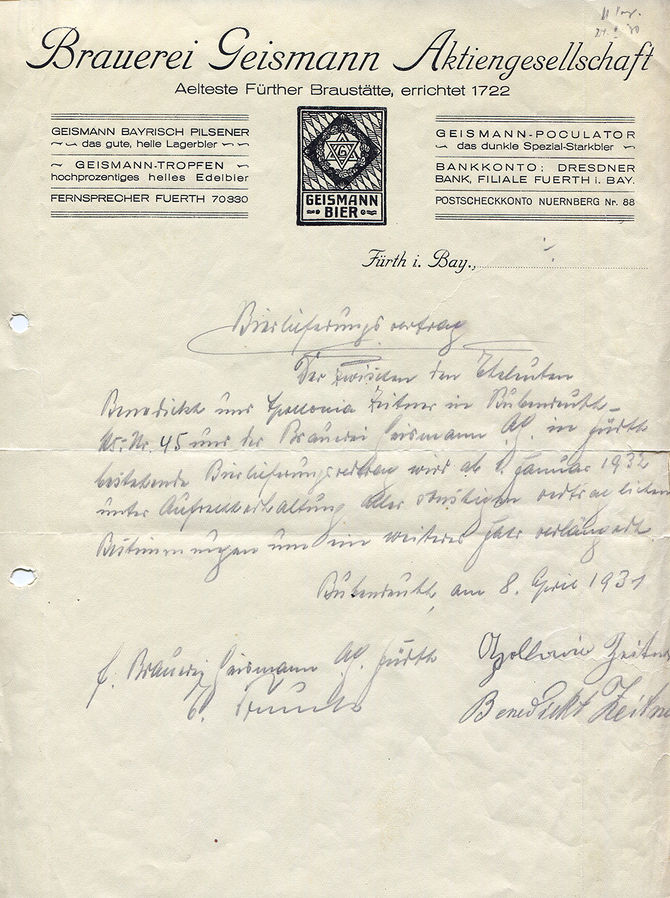 Brauerei Geismann Aktiengesellschaft
Aelteste Fürther Braustätte, errichtet 1722
GEISMANN BAYRISCH PILSENER
das gute, helle Lagerbier
GEISMANN-TROPFEN
hochprozentiges helles Edelbier
FERNSPRECHER FUERTH 70330
G
GEISMANN
BIER
GEISMANN-POCULATOR
das dunkle Spezial-Starkbier
BANKKONTO: DRESDNER
BANK, FILIALE FUERTH i. BAY.
POSTSCHECKKONTO NUERNBERG Nr. 88
Fürth i. Bay.,
Bierlieferungsvertrag
Der zwischen den Eheleuten
Benedickt und Apollonia Zeitner in Bubenreuth
Hs. Nr. 45 und der Brauerei Geismann AG. in Fürth
bestehende Bierlieferungsvertrag wird ab 1. Januar 1932
unter Aufrechterhaltung aller sonstigen vertraglichen
Bestimmungen um ein weiteres Jahr verlängert.
Bubenreuth, am 8. April 1931
f. Brauerei Geismann AG. Fürth
Apollonia Zeitner
Benedickt Zeitner